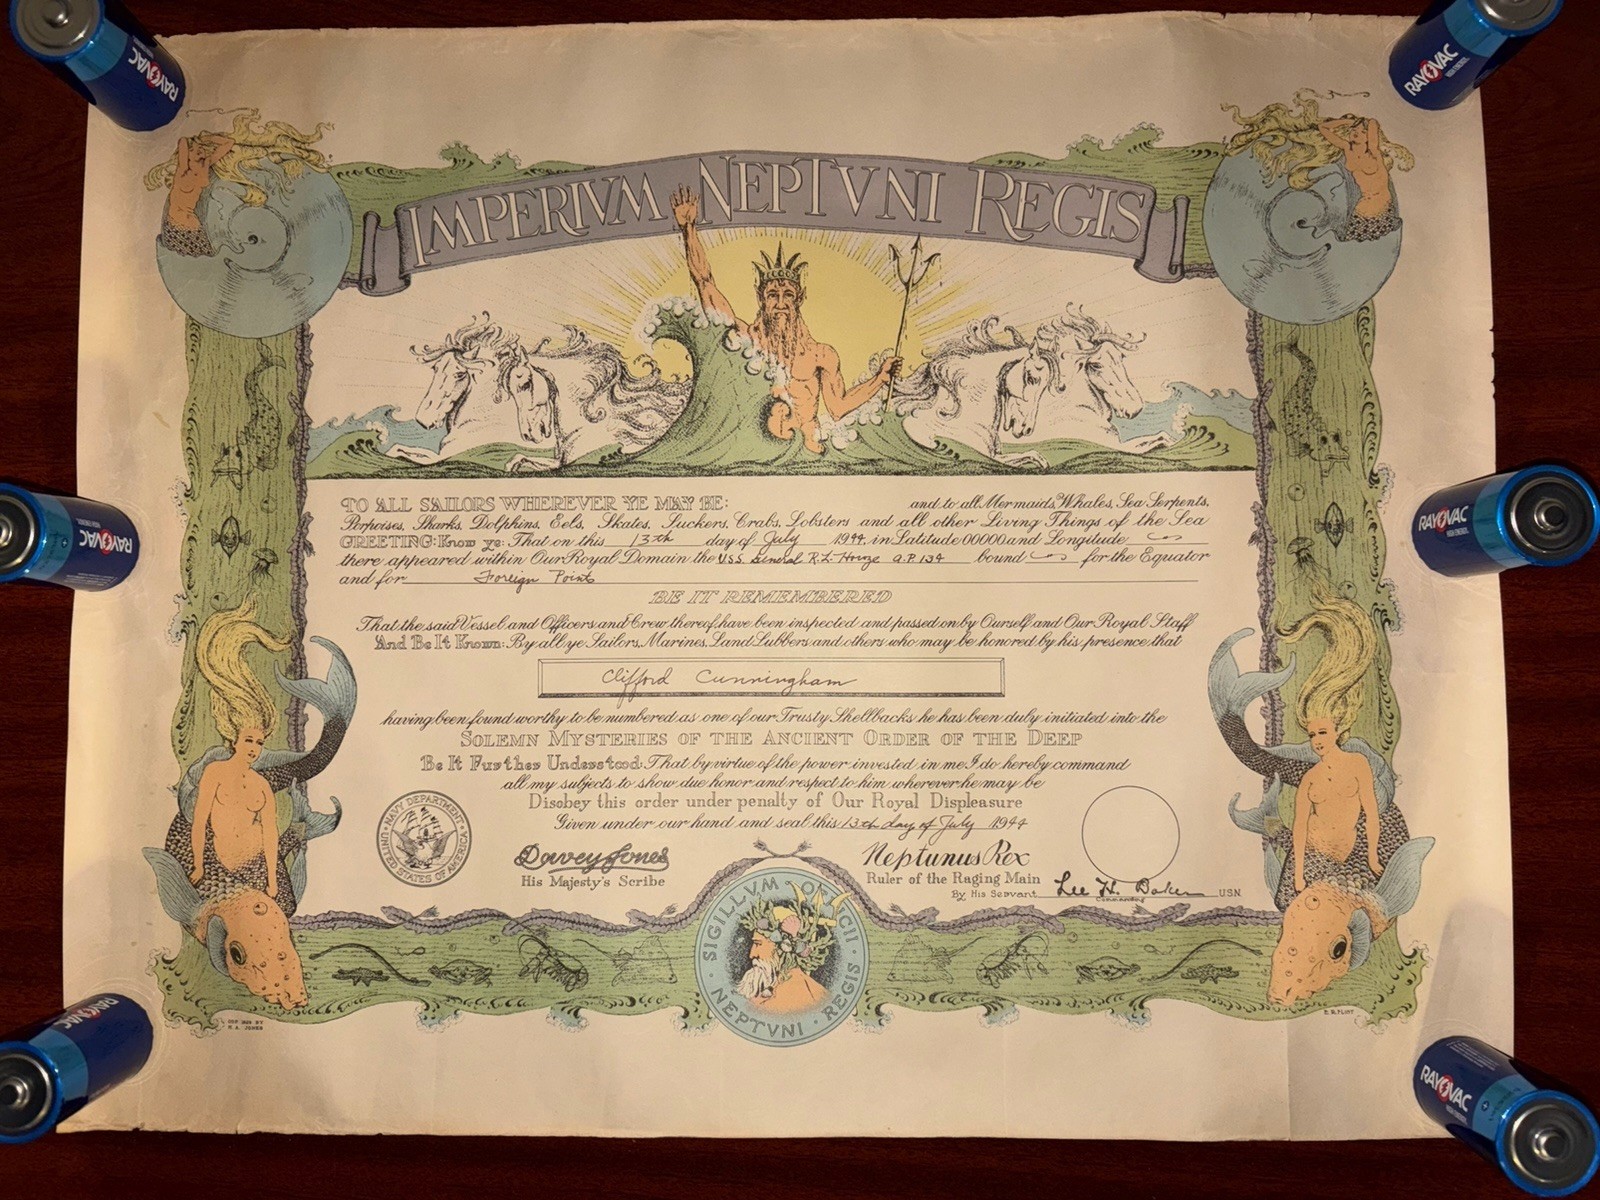 RAYOVAC
RAYOVAC
IMPERIVM NEPTVNI REGIS
TO ALL SAILORS WHEREVER YE MAY BE: and to all Mermaids, Whales, Sea Serpents,
Porpoises, Sharks, Dolphins, Eels, Skates, Suckers, Crabs, Lobsters and all other Living Things of the Sea
GREETING: Know ye: That on this 13th day of July 1944 in Latitude 00000 and Longitude
there appeared within Our Royal Domain the U.S.S. General R.L. Howze A.P. 134 bound for the Equator
and for Foreign Points
BE IT REMEMBERED
That the said Vessel and Officers and Crew thereof, have been inspected and passed on by Ourself and Our Royal Staff
And Be It Known: By all ye Sailors, Marines, Land Lubbers and others who may be honored by his presence that
Clifford Cunningham
having been found worthy to be numbered as one of our Trusty Shellbacks he has been duly initiated into the
SOLEMN MYSTERIES OF THE ANCIENT ORDER OF THE DEEP
Be It Further Understood: That by virtue of the power invested in me I do hereby command
all my subjects to show due honor and respect to him wherever he may be
Disobey this order under penalty of Our Royal Displeasure
Given under our hand and seal this 13th day of July 1944
NAVY DEPARTMENT
UNITED STATES OF AMERICA
Davey Jones
His Majesty's Scribe
Neptunus Rex
Ruler of the Raging Main
By His Servant Lee H. Baker U.S.N.
Commanding
SIGILLVM OFFICII
NEPTVNI REGIS
R. A. JONES
RAYOVAC
RAYOVAC
RAYOVAC
RAYOVAC